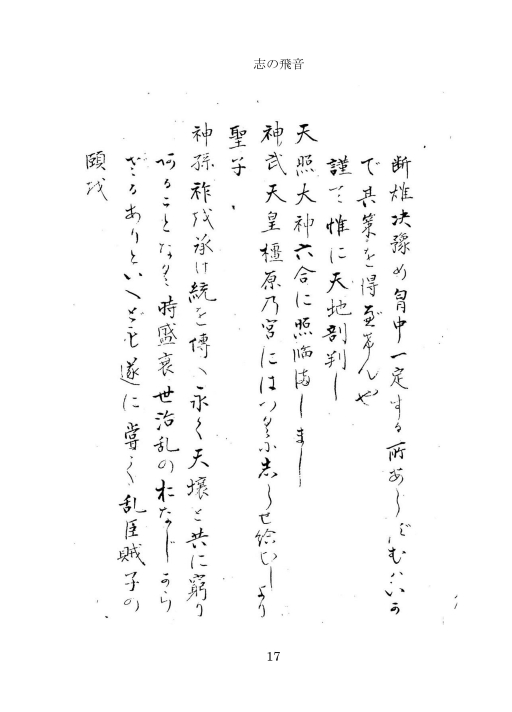 志の飛音
断雄决豫め胷中一定する所あらずむバいか
で其策を得可けんや
謹て惟に天地剖判し
天照大神六合に照臨ましまし
神武天皇橿原乃宮にはつくにしらせ給ひしより
聖子
神孫祚を承け統を傳へ永く天壤と共に窮り
ることなく時盛衰世治乱の
ざるありといへども遂に嘗て乱臣賊子の
願を
17